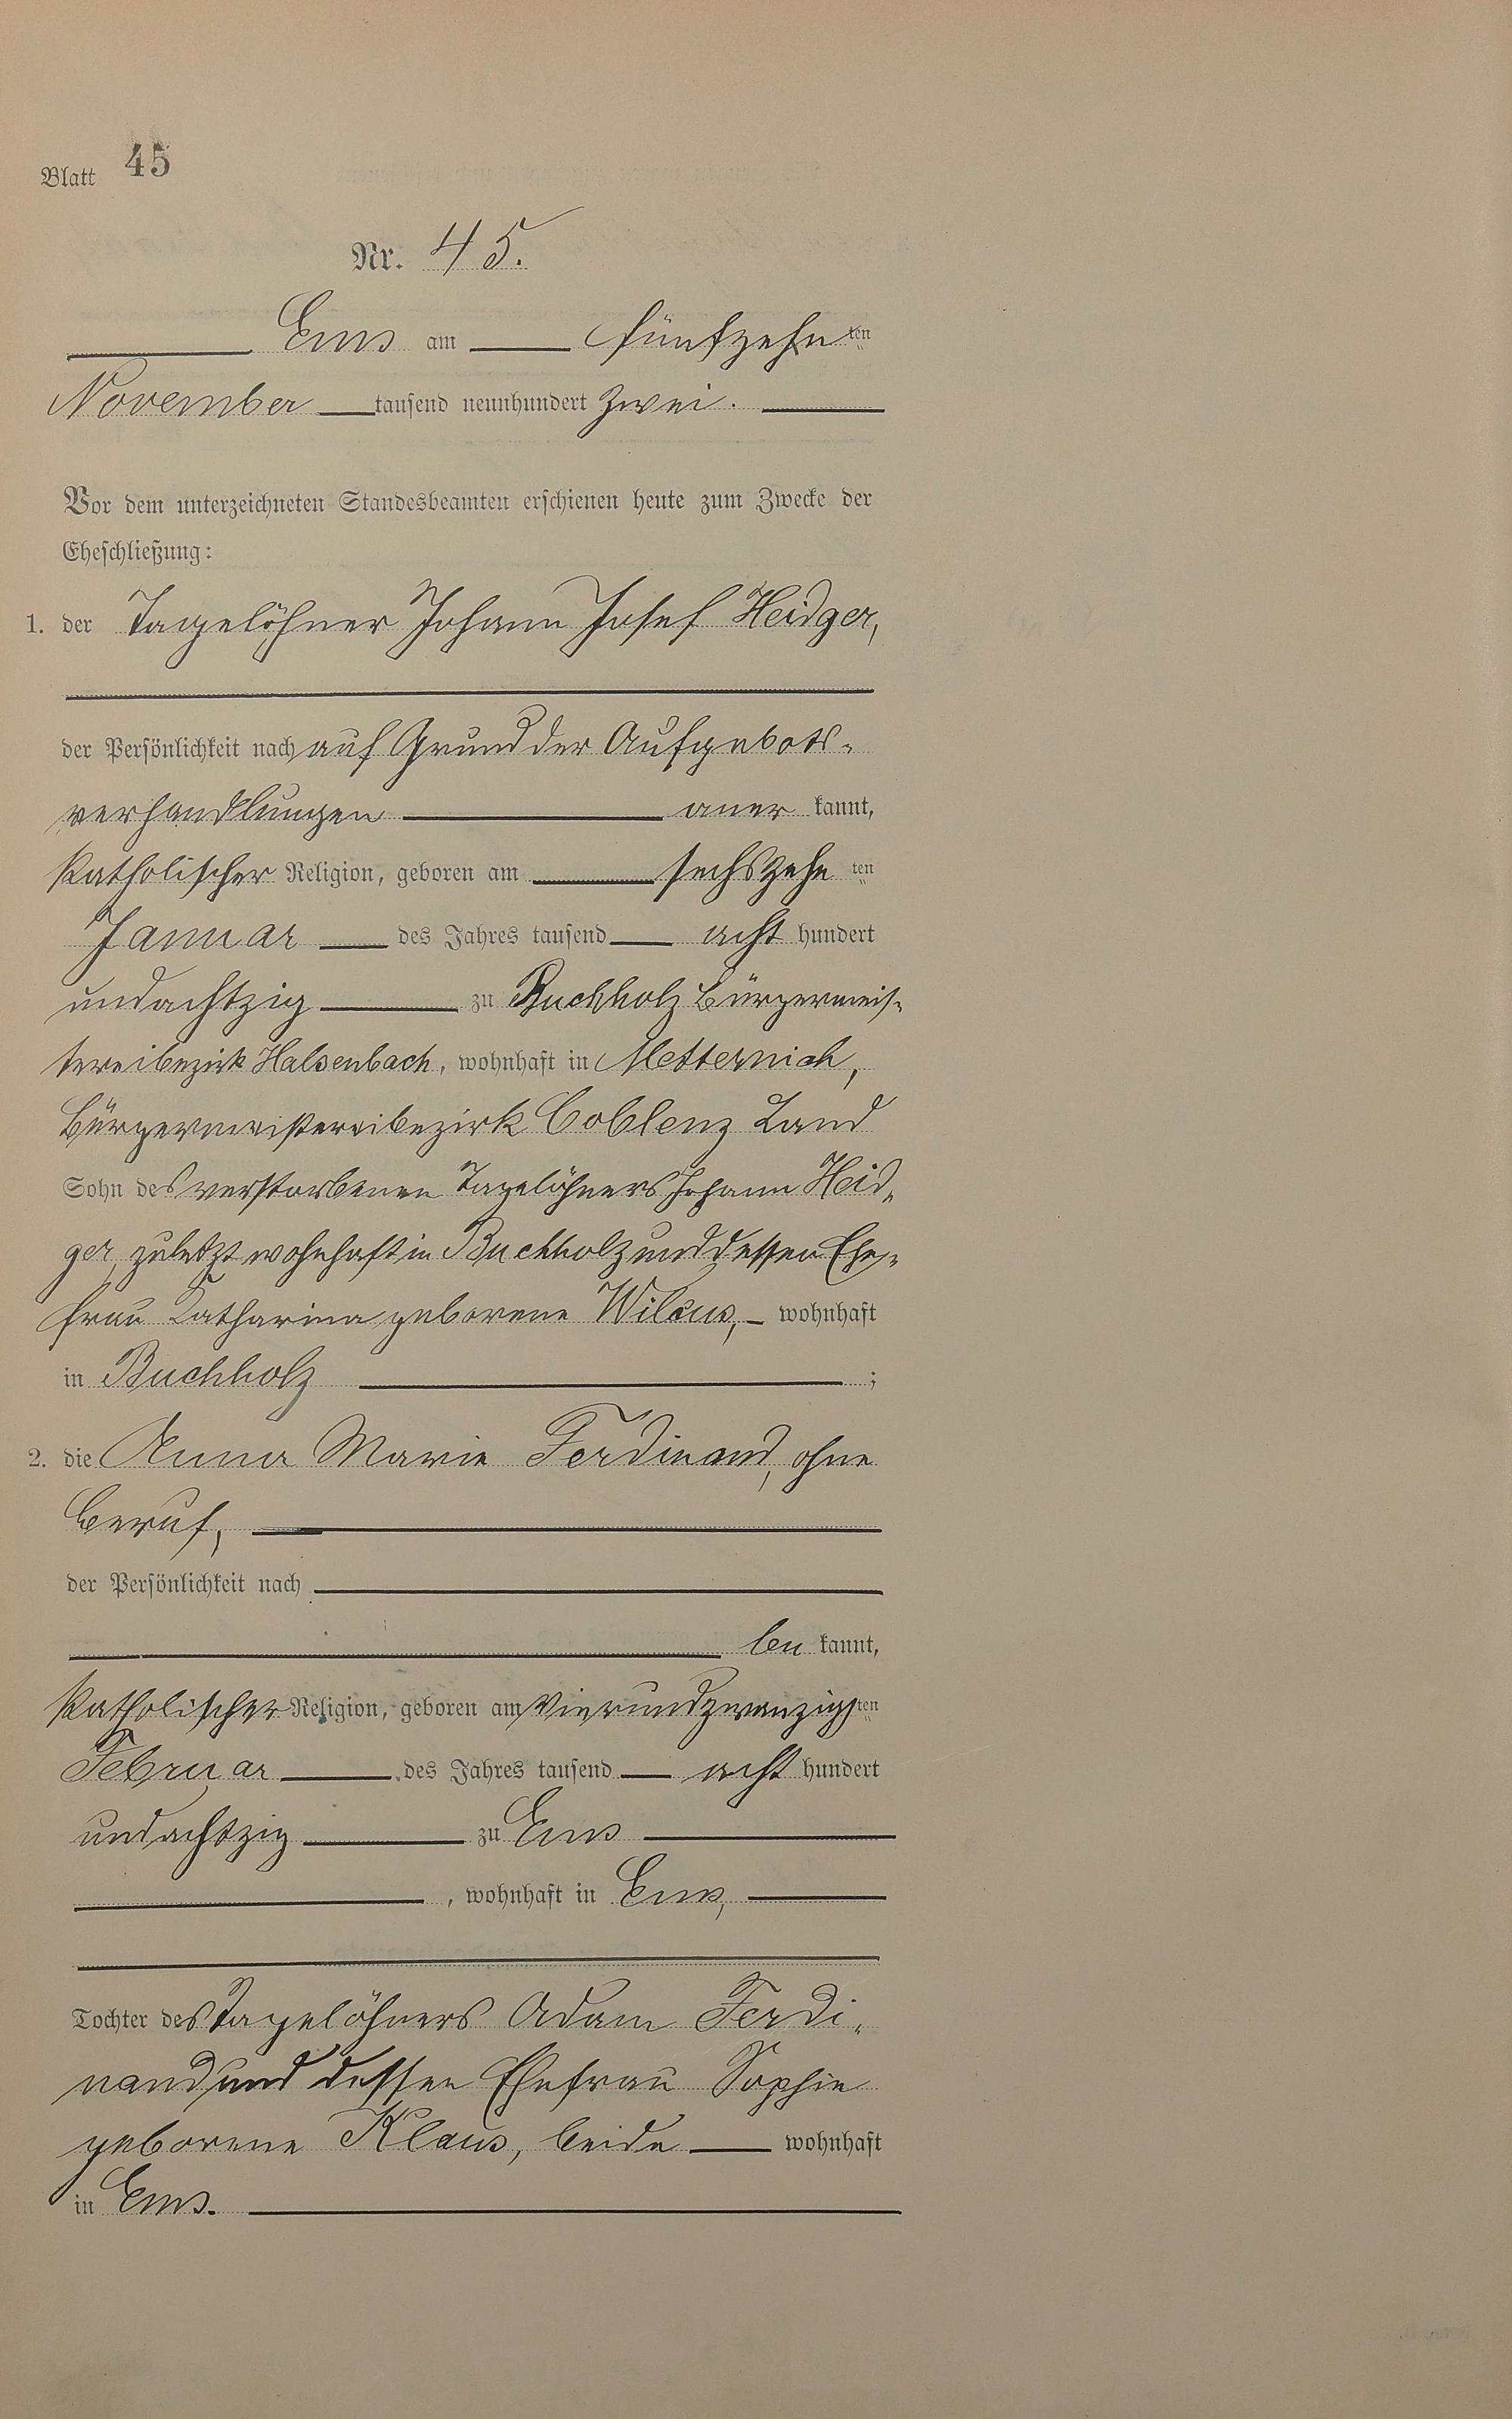 Blatt 45
Nr. 45.
Ems am fünfzehnten
November tausend neunhundert zwei.
Vor dem unterzeichneten Standesbeamten erschienen heute zum Zwecke der
Eheschließung:
1. der Tagelöhner Johann Josef Heidger,
der Persönlichkeit nach auf Grund der Aufgebots-
verhandlungen aner kannt,
katholischer Religion, geboren am sechszehn ten
Januar des Jahres tausend acht hundert
undachtzig zu Buchholz Bürgermeis-
tereibezirk Halsenbach, wohnhaft in Metternich,
Bürgermeistereibezirk Coblenz Land
Sohn des verstorbenen Tagelöhners Johann Heid-
ger, zuletzt wohnhaft in Buchholz und dessen Ehe-
frau Catharina geborene Wilcus, wohnhaft
in Buchholz ;
2. die Anna Marie Ferdinand, ohne
Beruf,
der Persönlichkeit nach
be kannt,
katholischer Religion, geboren am vierundzwanzigsten
Februar des Jahres tausend acht hundert
undachtzig zu Ems
, wohnhaft in Ems,
Tochter des Tagelöhners Adam Ferdi-
nand und dessen Ehefrau Sophie
geborene Klaus, beide wohnhaft
in Ems.